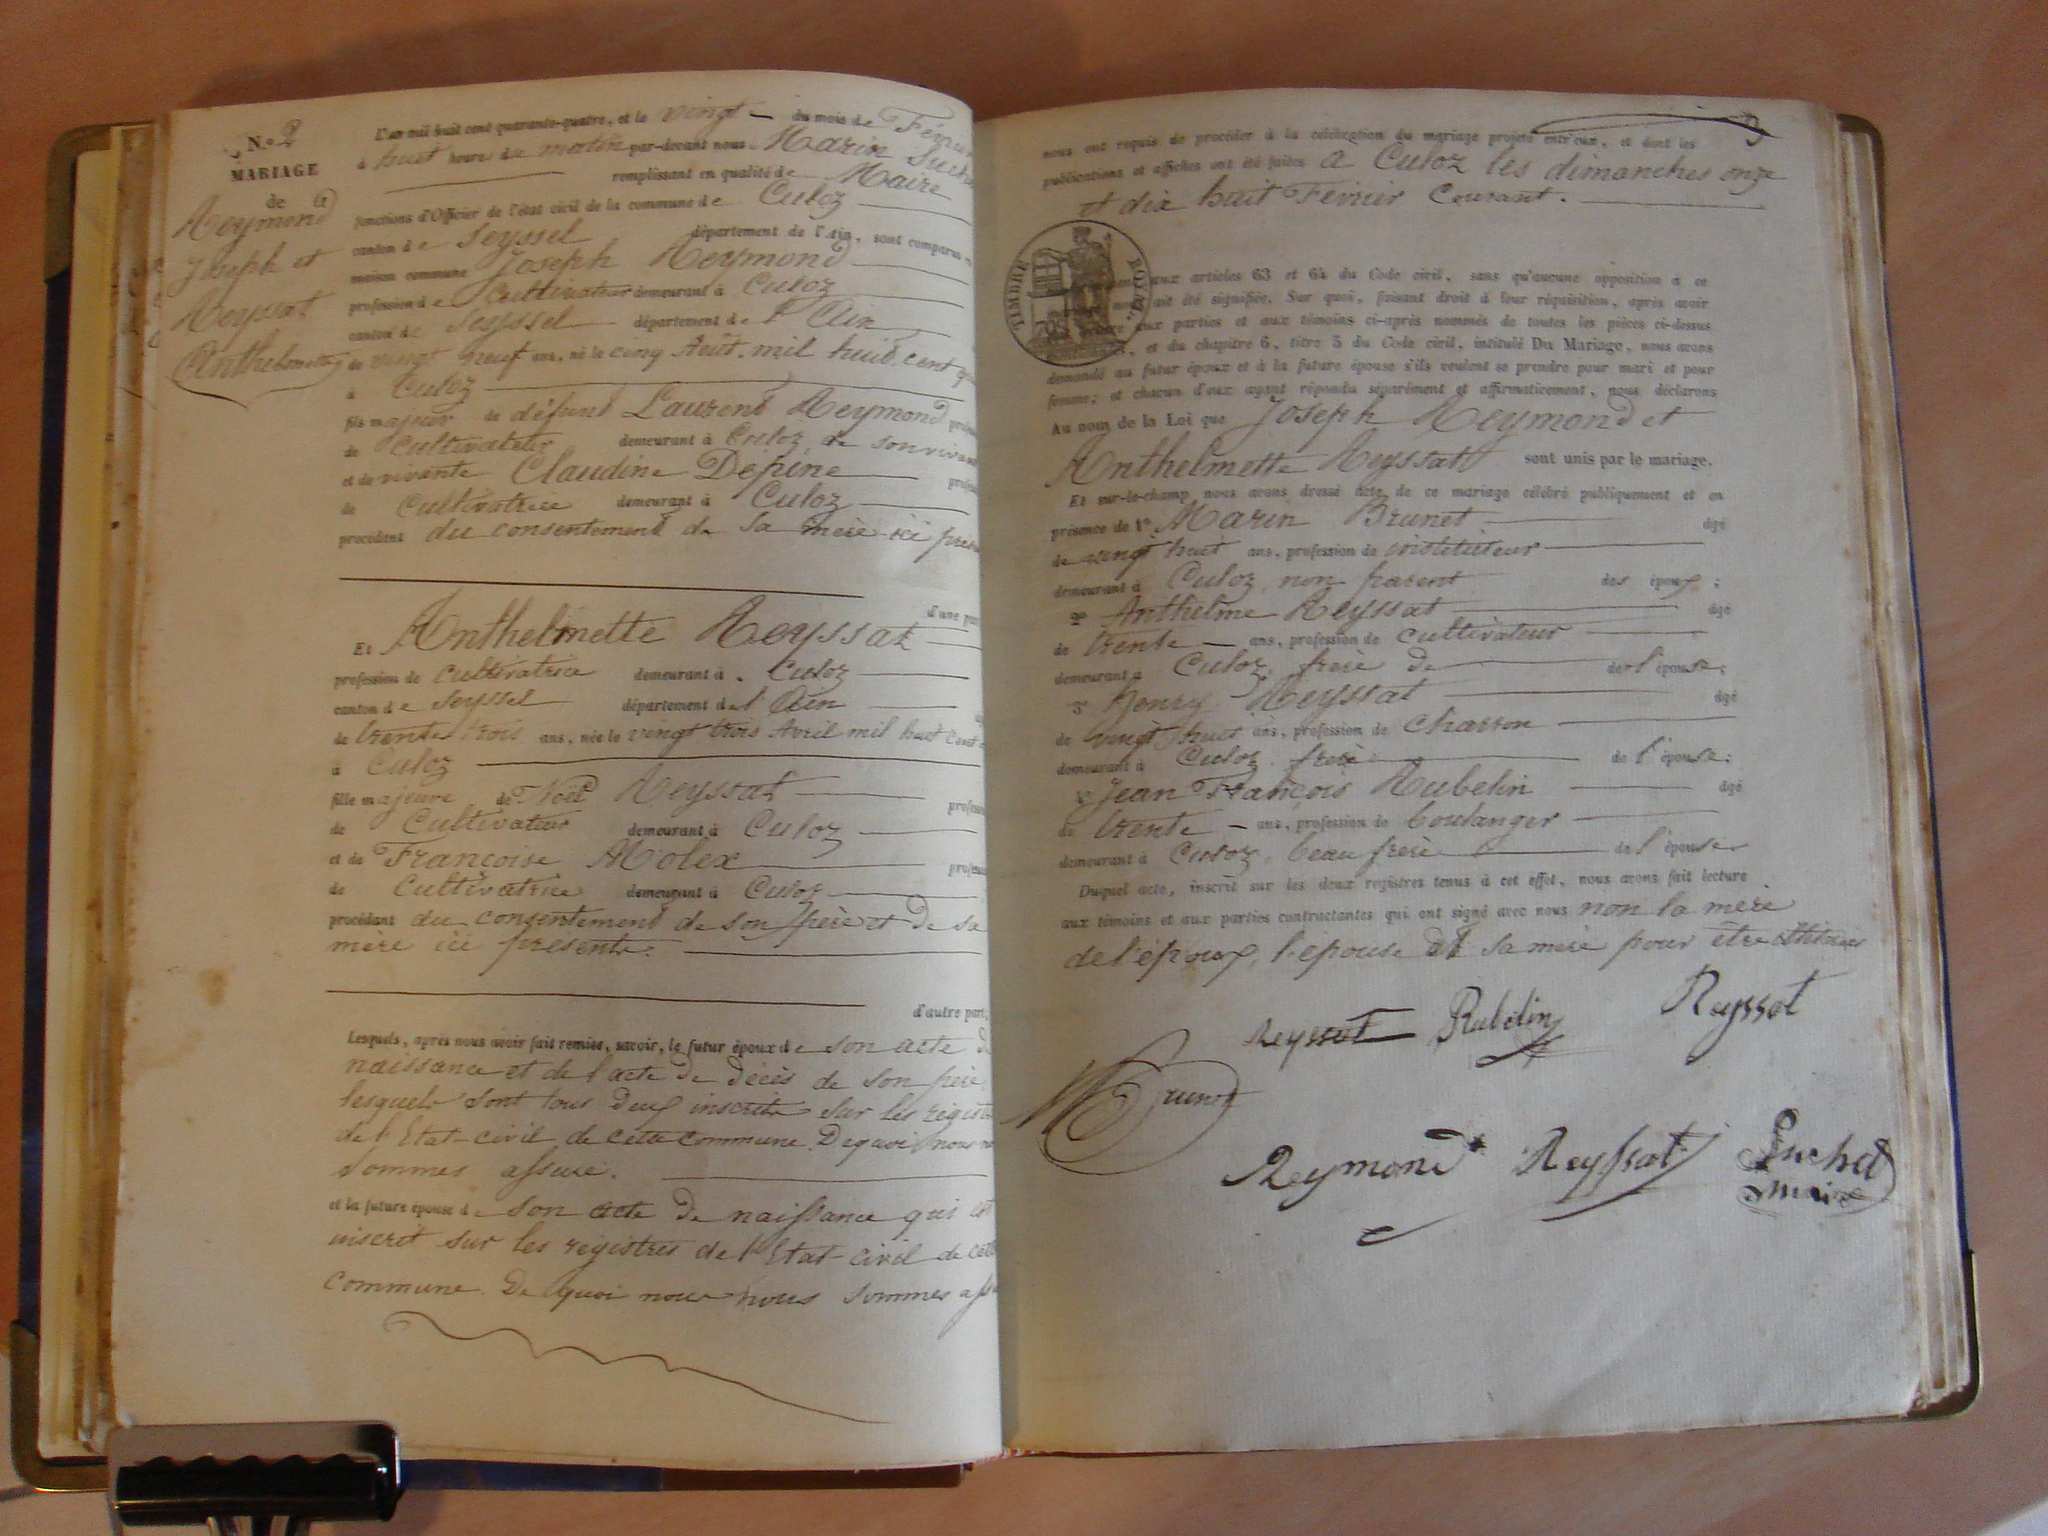 N.o 2
MARIAGE
de
Reymond
Joseph et
Reyssat
Anthelmette
L'an mil huit cent quarante-quatre, et le vingt du mois de Février
à huit heure du matin par-devant nous Marin Puchet
remplissant en qualité de Maire
fonctions d'Officier de l'état civil de la commune de Culoz
canton de Seyssel département de l'Ain, sont comparus en
maison commune Joseph Reymond
profession de Cultivateur demeurant à Culoz
canton de Seyssel département de l'Ain
de vingt neuf ans, né le cinq Aout mil huit cent
à Culoz
fils majeur de défunt Laurent Reymond
de Cultivateur demeurant à Culoz de son vivant
et de vivante Claudine Dépine
de Cultivatrice demeurant à Culoz
procédant du consentement de sa mère ici
d'une part
Et Anthelmette Reyssat
profession de cultivatrice demeurant à Culoz
canton de Seyssel département de l'Ain
de trente trois ans, née le vingt trois Avril mil huit cent
à Culoz
fille majeure de Noël Reyssat
de Cultivateur demeurant à Culoz
et de Françoise Molex
de Cultivatrice demeurant à Culoz
procédant du consentement de son père et de sa
mère ici présents.
d'autre part,
Lesquels, après nous avoir fait remise, savoir, le futur époux de son acte de
naissance et de l'acte de décès de son père
lesquels sont tous deux inscrits sur les
de l'Etat-civil de cette commune. De quoi nous
sommes assuré.
et la future épouse de son acte de naissance qui est
inscrit sur les registres de l'Etat-civil de
commune. De quoi nous nous sommes
nous ont requis de procéder à la célébration du mariage projeté entr'eux, et dont les
publications et affiches ont été faites à Culoz les dimanches onze
et dix huit Février Courant.
TIMBRE ROYAL
aux articles 63 et 64 du Code civil, sans qu'aucune opposition à ce
ait été signifiée. Sur quoi, faisant droit à leur réquisition, après avoir
aux parties et aux témoins ci-après nommés de toutes les pièces ci-dessus
, et du chapitre 6, titre 5 du Code civil, intitulé Du Mariage, nous avons
demandé au futur époux et à la future épouse s'ils veulent se prendre pour mari et pour
femme; et chacun d'eux ayant répondu séparément et affirmativement, nous déclarons
Au nom de la Loi que Joseph Reymond et
Anthelmette Reyssat sont unis par le mariage.
Et sur-le-champ nous avons dressé acte de ce mariage célébré publiquement et en
présence de 1o Marin Brunet âgé
de vingt huit ans, profession de instituteur
demeurant à Culoz, non parent des époux;
2o Anthelme Reyssat âgé
de trente ans, profession de cultivateur
demeurant à Culoz, frère de de l'épouse;
3o Henry Reyssat âgé
de vingt huit ans, profession de charron
demeurant à Culoz frère de l'épouse;
Jean François Rubelin âgé
de trente ans, profession de boulanger
demeurant à Culoz, beau frère de l'épouse
Duquel acte, inscrit sur les deux registres tenus à cet effet, nous avons fait lecture
aux témoins et aux parties contractantes qui ont signé avec nous non la mère
de l'époux, l'épouse et sa mère pour être illitérées
Reyssat Rubelin Reyssat
Brunet
Reymond Reyssat Puchet
maire